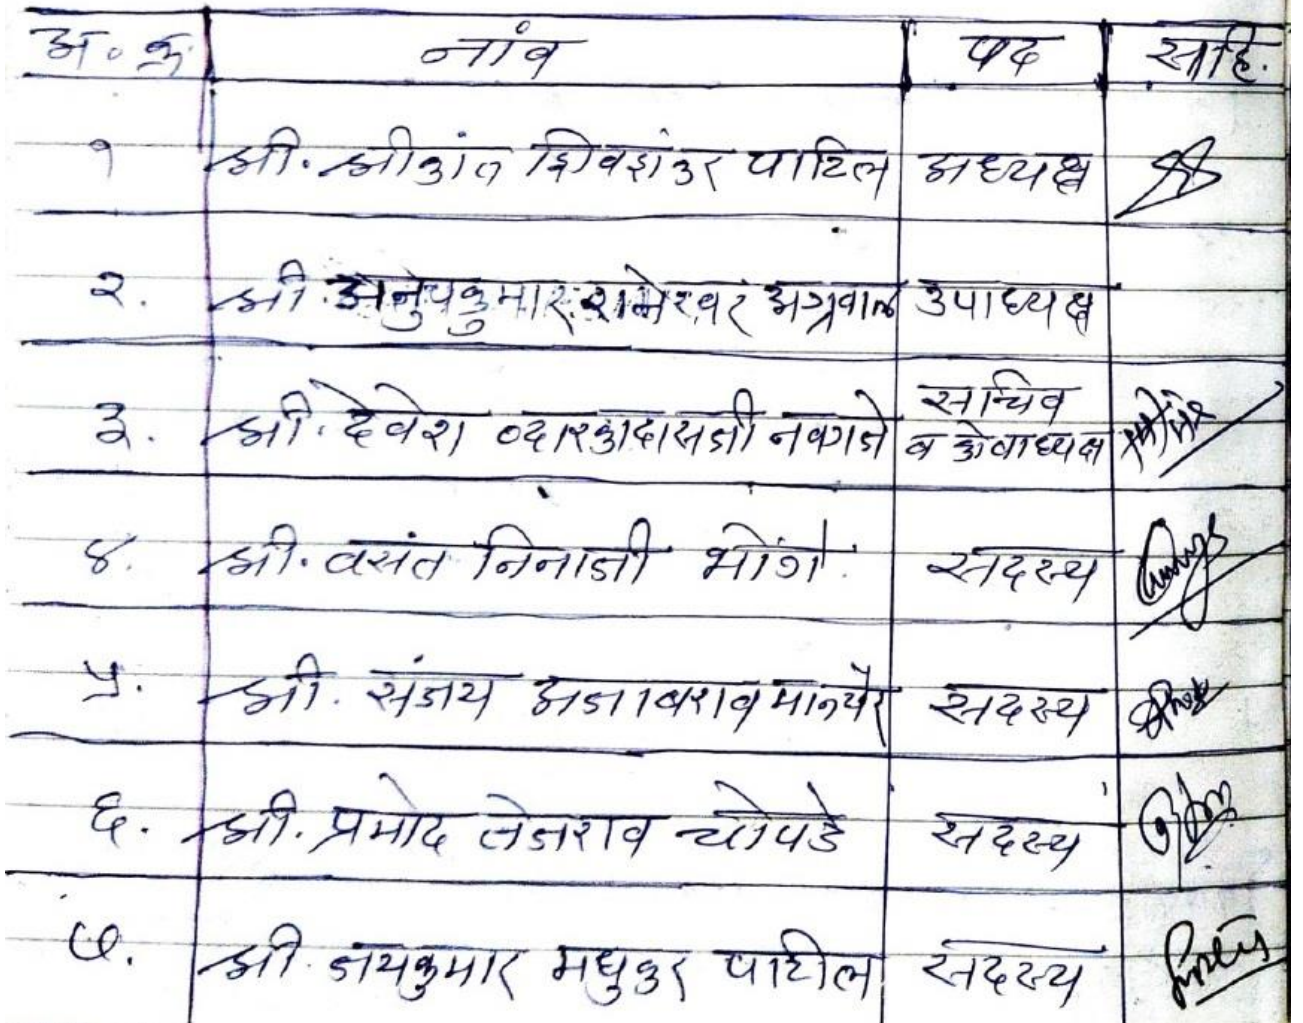 अ. क्र. नांव पद साहि.
१ श्री. श्रीकांत शिवशंकर पाटिल अध्यक्ष
२. श्री. अनुपकुमार रामेश्वर अग्रवाल उपाध्यक्ष
३. श्री. देवेश द्वारकादासजी नवगजे सचिव
व कोषाध्यक्ष
४. श्री. वसंत निनाजी भोंगे. सदस्य
५. श्री. संजय अजाबराव सदस्य
६. श्री. प्रमोद तेजराव चोपडे सदस्य
७. श्री. जयकुमार मधुकर पाटील सदस्य